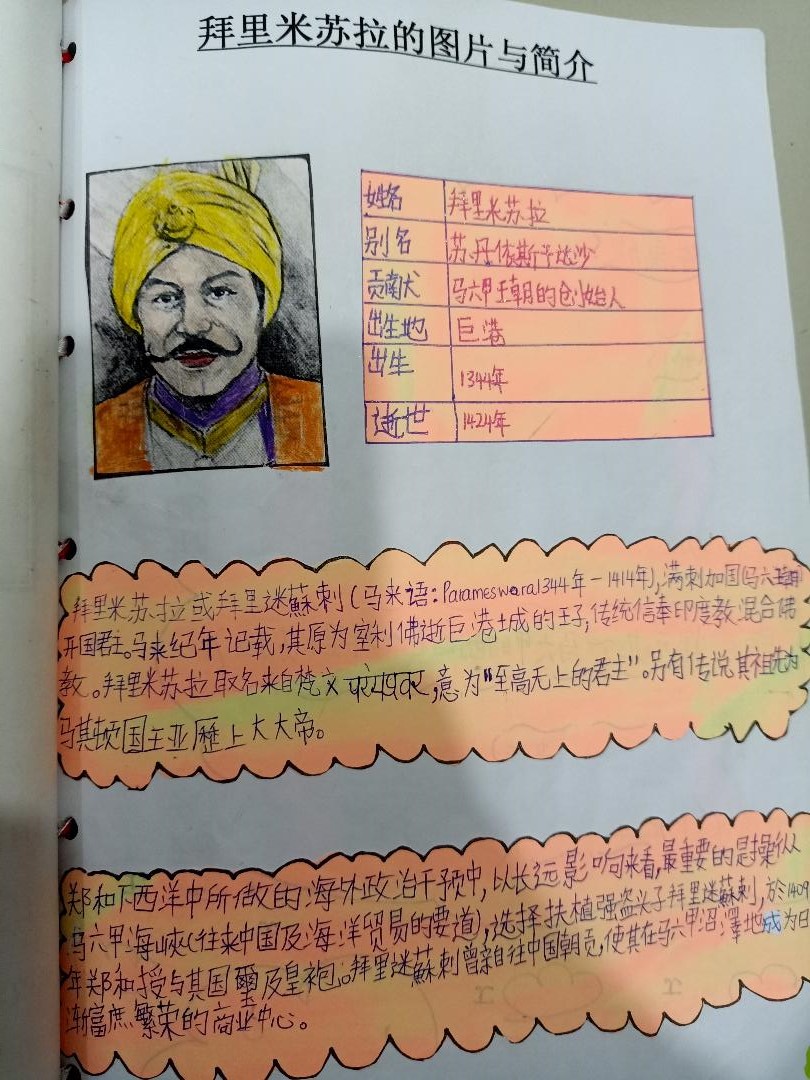 拜里米苏拉的图片与简介
姓名 拜里米苏拉
别名 苏丹依斯干达沙
贡献 马六甲王朝的创始人
出生地 巨港
出生 1344年
逝世 1424年
拜里米苏拉或拜里迷蘇剌(马来语:Parameswara1344年-1414年),满剌加国(马六甲王朝)
开国君主。马来纪年记载,其原为室利佛逝巨港城的王子,传统信奉印度教混合佛
教。拜里米苏拉取名来自梵文परमेश्वर,意为"至高无上的君主"。另有传说其祖先为
马其顿国王亚歷上大大帝。
郑和下西洋中所做的海外政治干预中,以长远影响来看,最重要的是操纵
马六甲海峡(往来中国及海洋贸易的要道),选择扶植强盗头子拜里迷蘇剌,於1409
年郑和授与其国璽及皇袍。拜里迷蘇剌曾亲自往中国朝贡,使其在马六甲沼澤地成为日
渐富庶繁荣的商业中心。